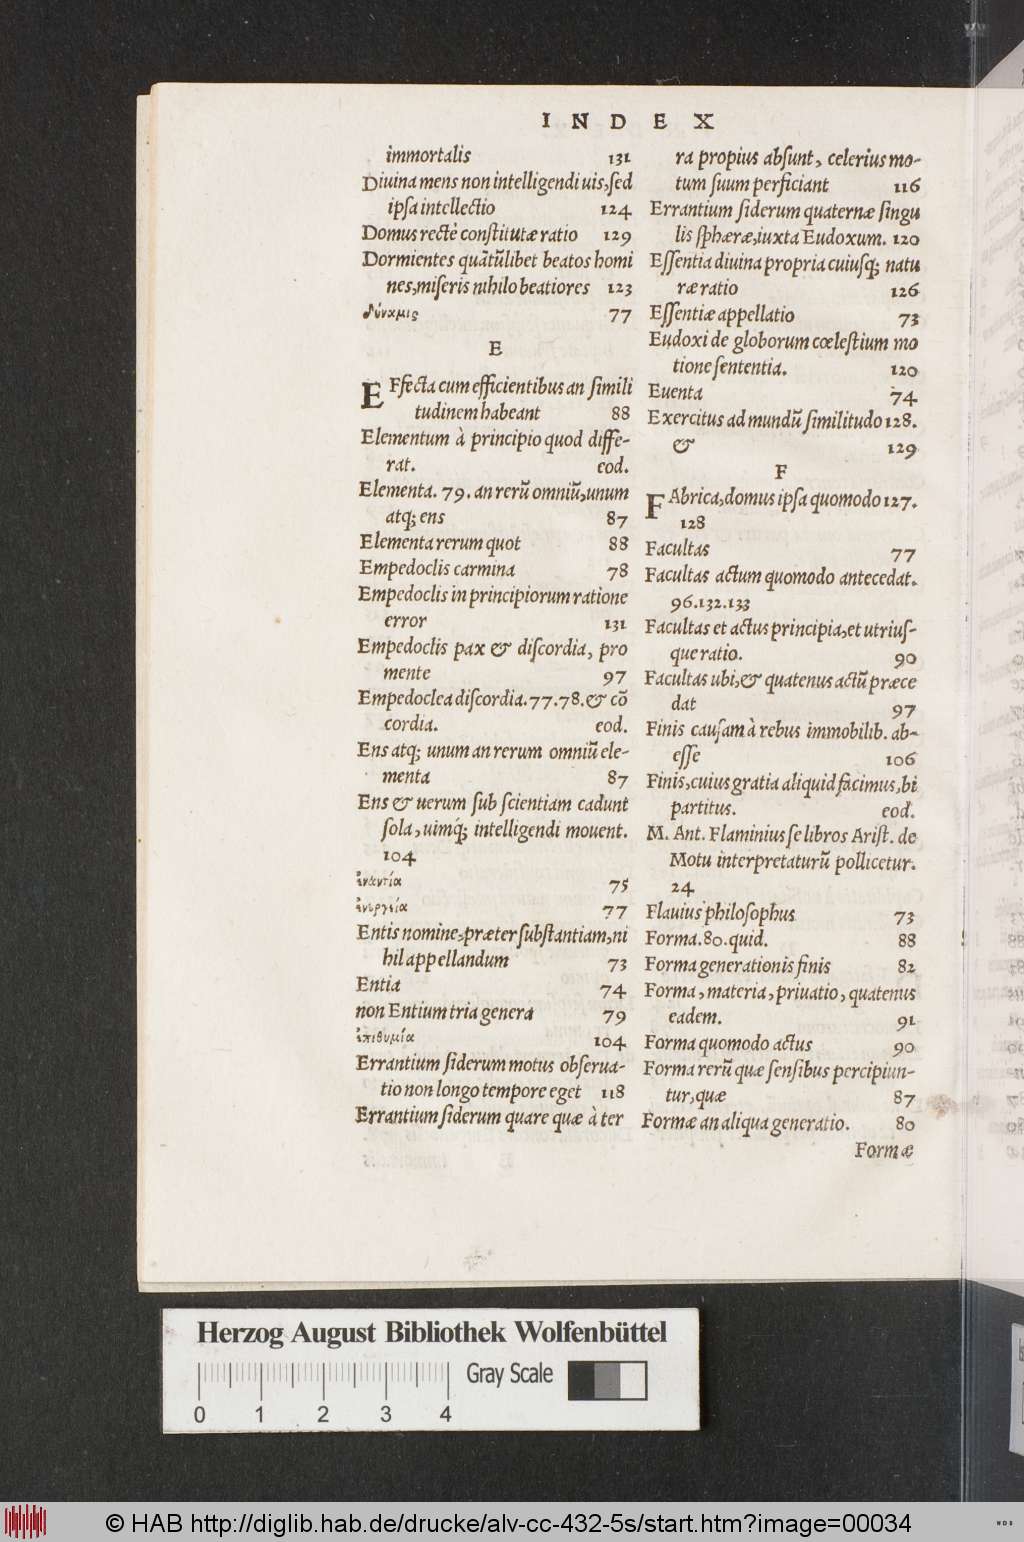 INDEX
immortalis 131
Diuina mens non intelligendi uis, sed
ipsa intellectio 124
Domus rectè constitutæ ratio 129
Dormientes quātūlibet beatos homi
nes, miseris nihilo beatiores 123
δύναμις 77
E
EFfecta cum efficientibus an simili
tudinem habeant 88
Elementum à principio quod diffe-
rat. eod.
Elementa. 79. an rerū omniū, unum
atq; ens 87
Elementa rerum quot 88
Empedoclis carmina 78
Empedoclis in principiorum ratione
error 131
Empedoclis pax & discordia, pro
mente 97
Empedoclea discordia. 77.78. & cō
cordia. eod.
Ens atq; unum an rerum omniū ele-
menta 87
Ens & uerum sub scientiam cadunt
sola, uimq́; intelligendi mouent.
104
ἐναντία 75
ἐνεργεία 77
Entis nomine, præter substantiam, ni
hil appellandum 73
Entia 74
non Entium tria genera 79
ἐπιθυμία 104
Errantium siderum motus obserua-
tio non longo tempore eget 118
Errantium siderum quare quæ à ter
ra propius absunt, celerius mo-
tum suum perficiant 116
Errantium siderum quaternæ singu
lis sphæræ, iuxta Eudoxum. 120
Essentia diuina propria cuiusq; natu
ræ ratio 126
Essentiæ appellatio 73
Eudoxi de globorum cœlestium mo
tione sententia. 120
Euenta 74
Exercitus ad mundū similitudo 128.
& 129
F
FAbrica, domus ipsa quomodo 127.
128
Facultas 77
Facultas actum quomodo antecedat.
96.132.133
Facultas et actus principia, et utrius-
que ratio. 90
Facultas ubi, & quatenus actū præce
dat 97
Finis causam à rebus immobilib. ab-
esse 106
Finis, cuius gratia aliquid facimus, bi
partitus. eod.
M. Ant. Flaminius se libros Arist. de
Motu interpretaturū pollicetur.
24
Flauius philosophus 73
Forma. 80. quid. 88
Forma generationis finis 82
Forma, materia, priuatio, quatenus
eadem. 91
Forma quomodo actus 90
Forma rerū quæ sensibus percipiun-
tur, quæ 87
Formæ an aliqua generatio. 80
Formæ
Herzog August Bibliothek Wolfenbüttel
Gray Scale
0 1 2 3 4
© HAB http://diglib.hab.de/drucke/alv-cc-432-5s/start.htm?image=00034